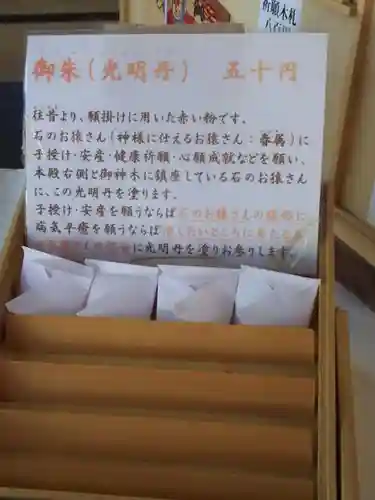 御朱(光明丹) 五十円
往昔より、願掛けに用いた赤い粉です。
石のお猿さん(神様に仕えるお猿さん:眷属)に
子授け・安産・健康祈願・心願成就などを願い、
本殿右側と御神木に鎮座している石のお猿さん
に、この光明丹を塗ります。
子授け・安産を願うならば石のお猿さんの
病気平癒を願うならば
に光明丹を塗りお参りします。
祈願木札